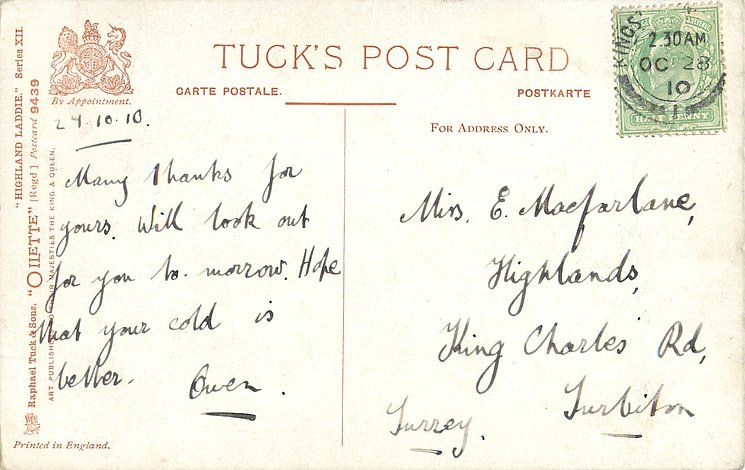 TUCK'S POST CARD
CARTE POSTALE.
POSTKARTE
FOR ADDRESS ONLY.
By Appointment.
"HIGHLAND LADDIE." Series XII.
Raphael Tuck & Sons, "OILETTE" [Regd.] Postcard 9439
ART PUBLISHERS TO THEIR MAJESTIES THE KING & QUEEN.
Printed in England.
27.10.10.
Many thanks for
yours. Will look out
for you to-morrow. Hope
that your cold is
better. Owen.
Mrs. E. Macfarlane,
Highlands,
King Charles Rd,
Surbiton
Surrey.
KINGS
2.30AM
OC 28
10
HALFPENNY